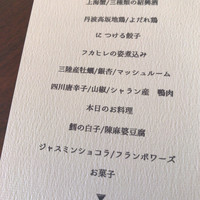 上海蟹/三種類の紹興酒
丹波高坂地鶏/よだれ鶏
につける餃子
フカヒレの姿煮込み
三陸産牡蠣/銀杏/マッシュルーム
四川唐辛子/山椒/シャラン産 鴨肉
本日のお料理
鱈の白子/陳麻婆豆腐
ジャスミンショコラ/フランボワーズ
お菓子